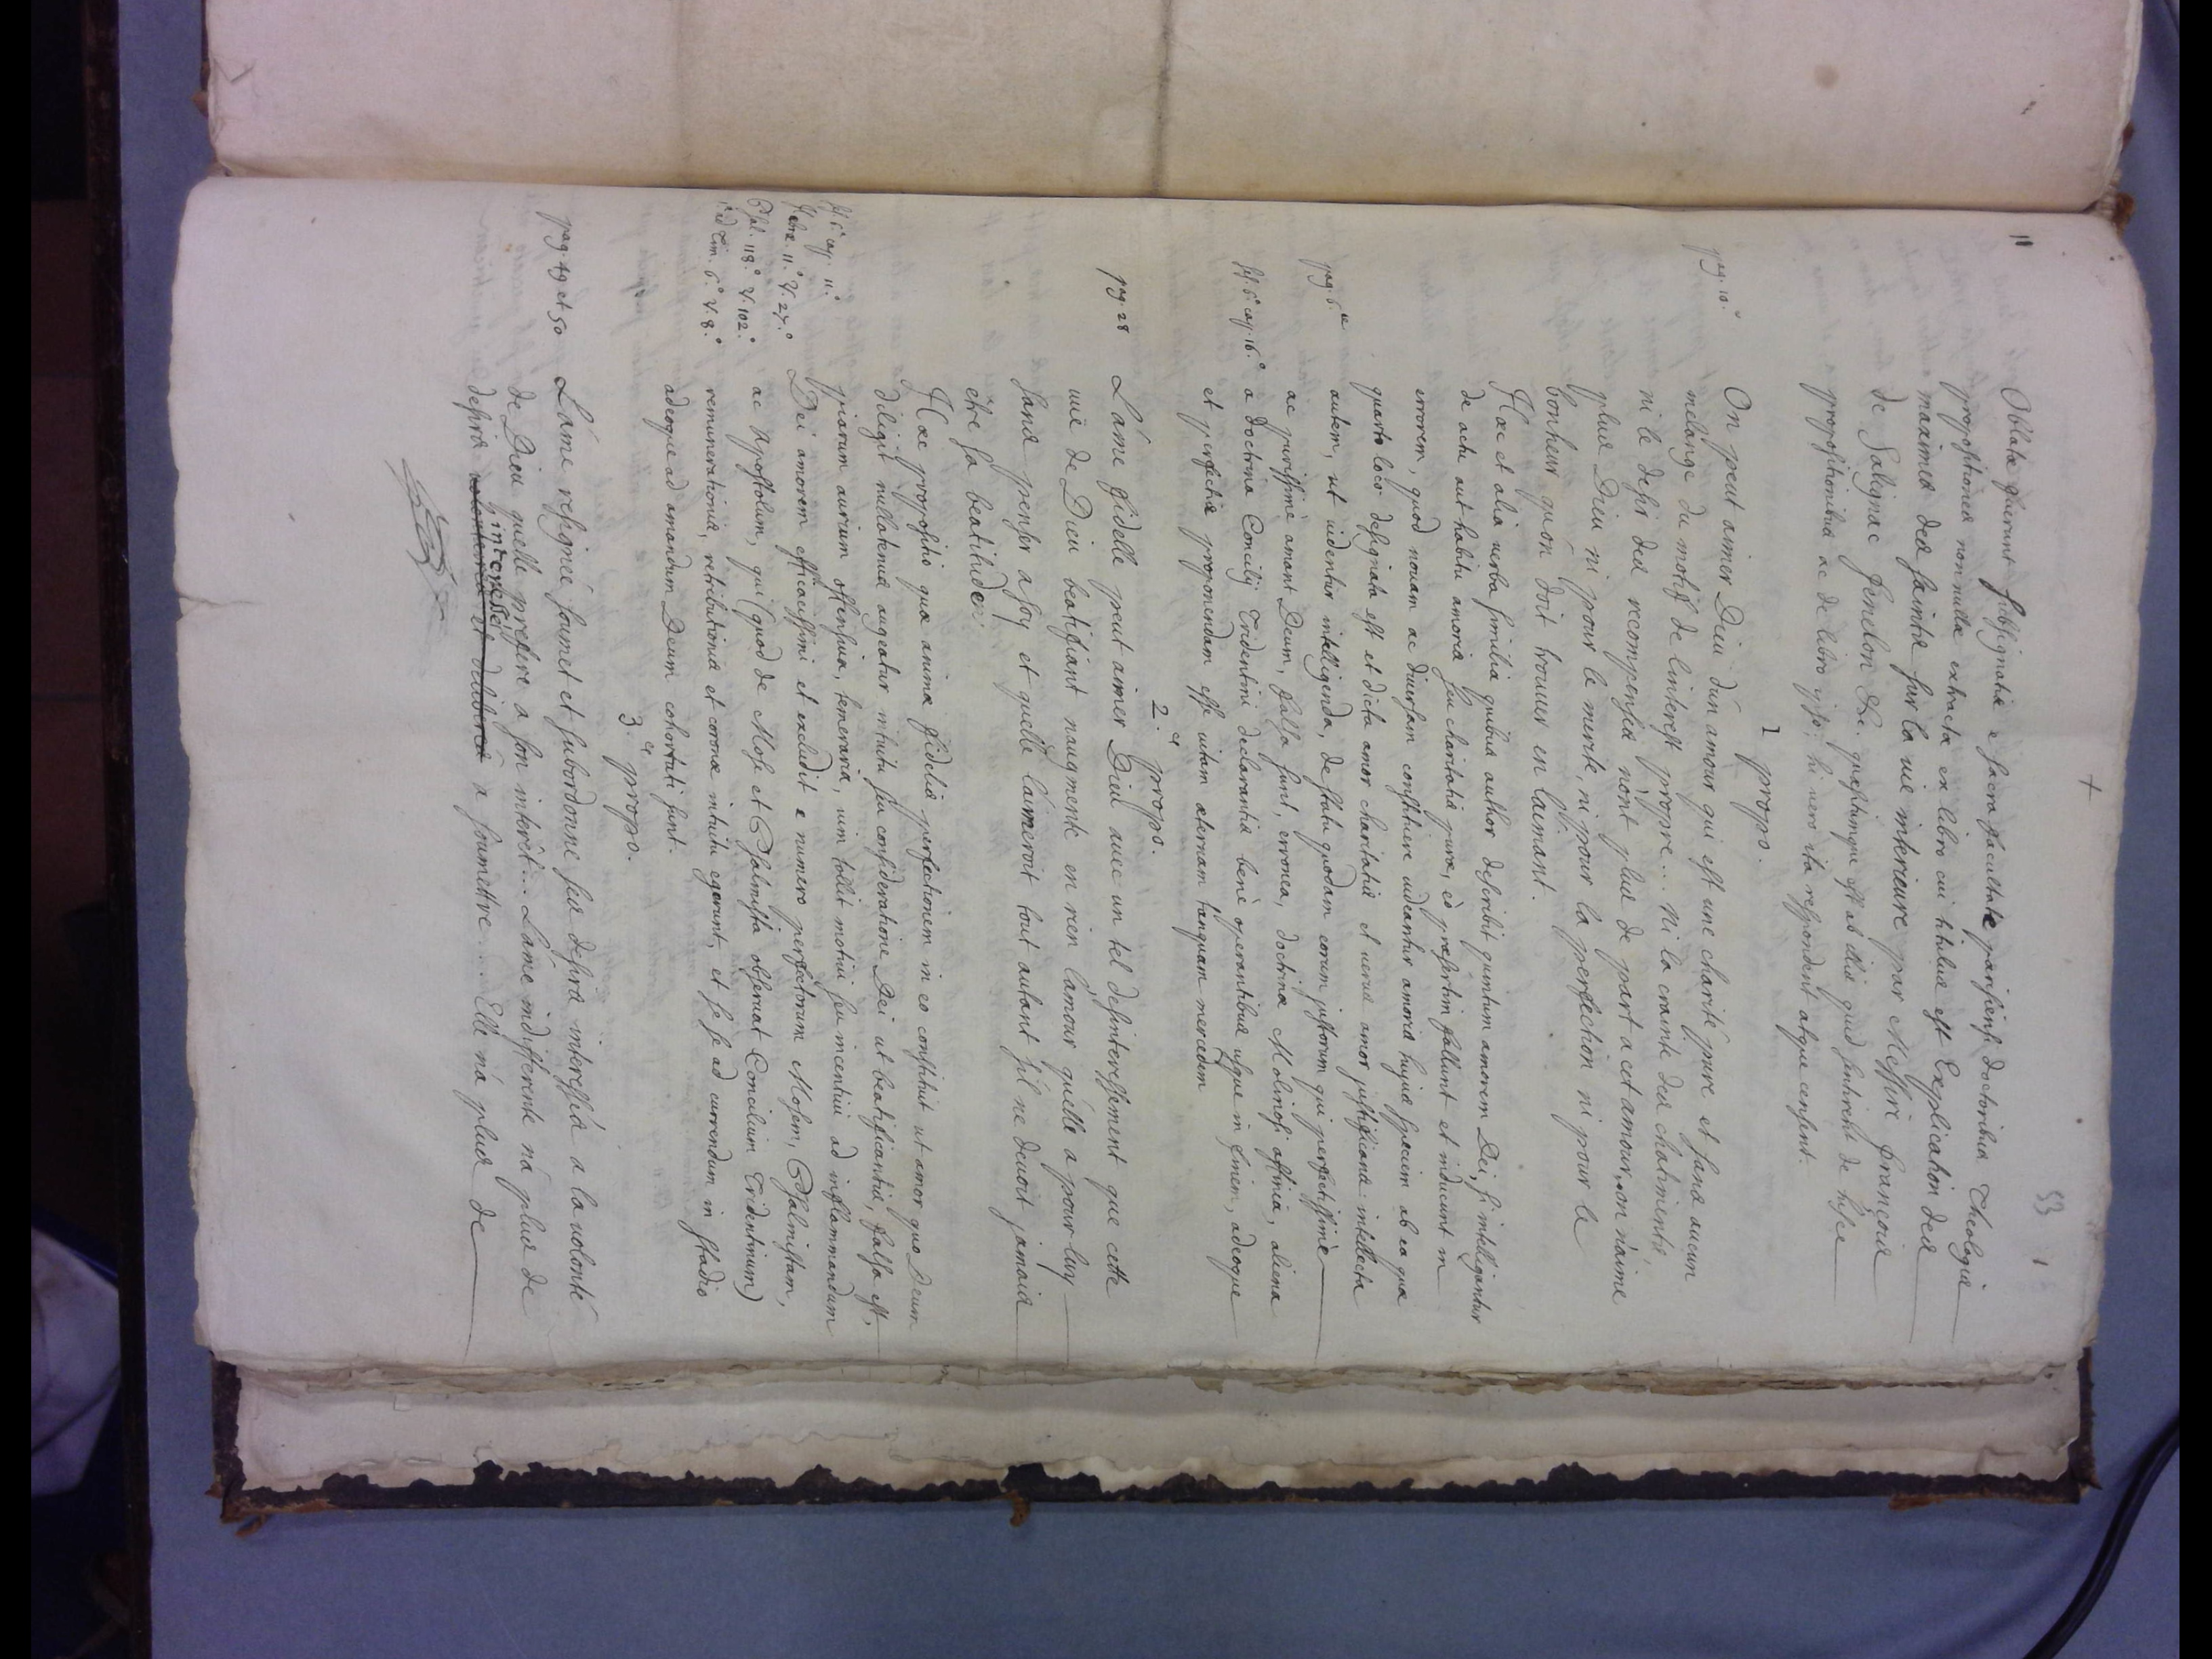 +
53 1
11
Oblatæ fuerunt subsignatis e sacra facultate parisiensi doctoribus Theologis
propositiones nonnullæ extractæ ex libro cui titulus est Explication des
maximes des saints sur la vie interieure par Messire françois
de Salignac fenelon &c. quæsitumque est ab illis quid sentirent de hisce
propositionibus ac de libro ipso; hi vero ita respondent atque censent.
1 propo.
pag. 10.
On peut aimer Dieu d'un amour qui est une charité pure et sans aucun
melange du motif de l'interest propre... Ni la crainte des chatiments
ni le desir des recompenses n'ont plus de part a cet amour, on n'aime
plus Dieu ni pour le merite, ni pour la perfection ni pour le
bonheur qu'on doit trouver en l'aimant.
Hæc et alia verba similia quibus author describit quintum amorem Dei, si intelligantur
de actu aut habitu amoris seu charitatis puræ, eò præsertim fallunt et inducunt in
errorem, quod novam ac diversam constituere videantur amoris hujus speciem ab ea quæ
quarto loco designata est et dicta amor charitatis et verus amor justificans intellecta
pag. 6.
autem, ut videntur intelligenda, de statu quodam eorum justorum qui perfectissimè
ac purissimè amant Deum, falsa sunt, erronea, doctrinæ Molinosi affinia, aliena
ses. 6.ª cap. 16.º
a doctrina Concilij Tridentini declarantis benè operantibus usque in finem, adeoque
et perfectis proponendam esse vitam æternam tanquam mercedem
2.ª propo.
pag. 28
L'ame fidelle peut aimer Dieu avec un tel desinteressement que cette
vüe de Dieu beatifiant n'augmente en rien l'amour qu'elle a pour luy
sans penser a soy et qu'elle l'aimeroit tout autant s'il ne devoit jamais
étre sa beatitude.
Hæc propositio quæ animæ fidelis perfectionem in eo constituit ut amor quo Deum
diligit nullatenus augeatur intuitu seu consideratione Dei ut beatificantis, falsa est,
ses. 6.ª cap. 11.º
piarum aurium offensiva, temeraria, vim tollit motivi seu incentivi ad inflammandum
Hebræ. 11.º V. 27.º
Dei amorem efficacissimi et excludit e numero perfectorum Mosem, Psalmistam,
Psal. 118.º V. 102.º
ac Apostolum, qui (quod de Mose et Psalmista observat Concilium Tridentinum)
1.ª ad Tim. 6.º V. 8.º
remunerationis, retributionis et coronæ intuitu egerunt, et se se ad currendum in stadio
adeoque ad amandum Deum cohortati sunt.
3.ª propo.
pag. 49 et 50
L'ame resignée soumet et subordonne ses desirs interessés a la volonté
de Dieu qu'elle prefere a son interêt... L'ame indifferente n'a plus de
interessés
desirs volontaires et deliberés a soumettre.... Elle n'a plus de